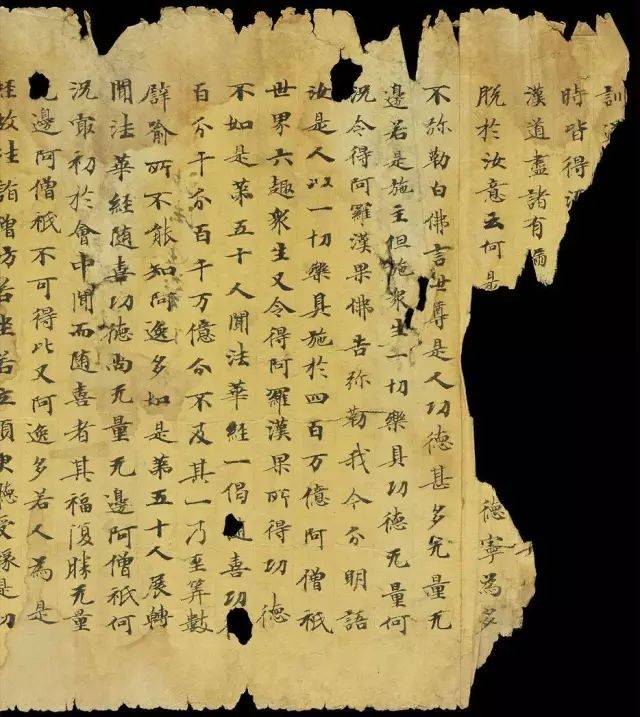 訓
時皆得
漢道盡諸有漏
脫於汝意云何是德寧為多
不弥勒白佛言世尊是人功德甚多无量无
邊若是施主但施衆生一切樂具功德无量何
況令得阿羅漢果佛告弥勒我今分明語
汝是人以一切樂具施於四百万億阿僧祇
世界六趣衆生又令得阿羅漢果所得功德
不如是第五十人聞法華經一偈隨喜功
百分千分百千万億分不及其一乃至筭數
譬喻所不能知阿逸多如是第五十人展轉
聞法華經随喜功德尚无量无邊阿僧祇何
況寂初於會中聞而随喜者其福復勝无量
邊阿僧祇不可得比又阿逸多若人為是
經故往詣僧坊若坐若立須臾聽受緣是功